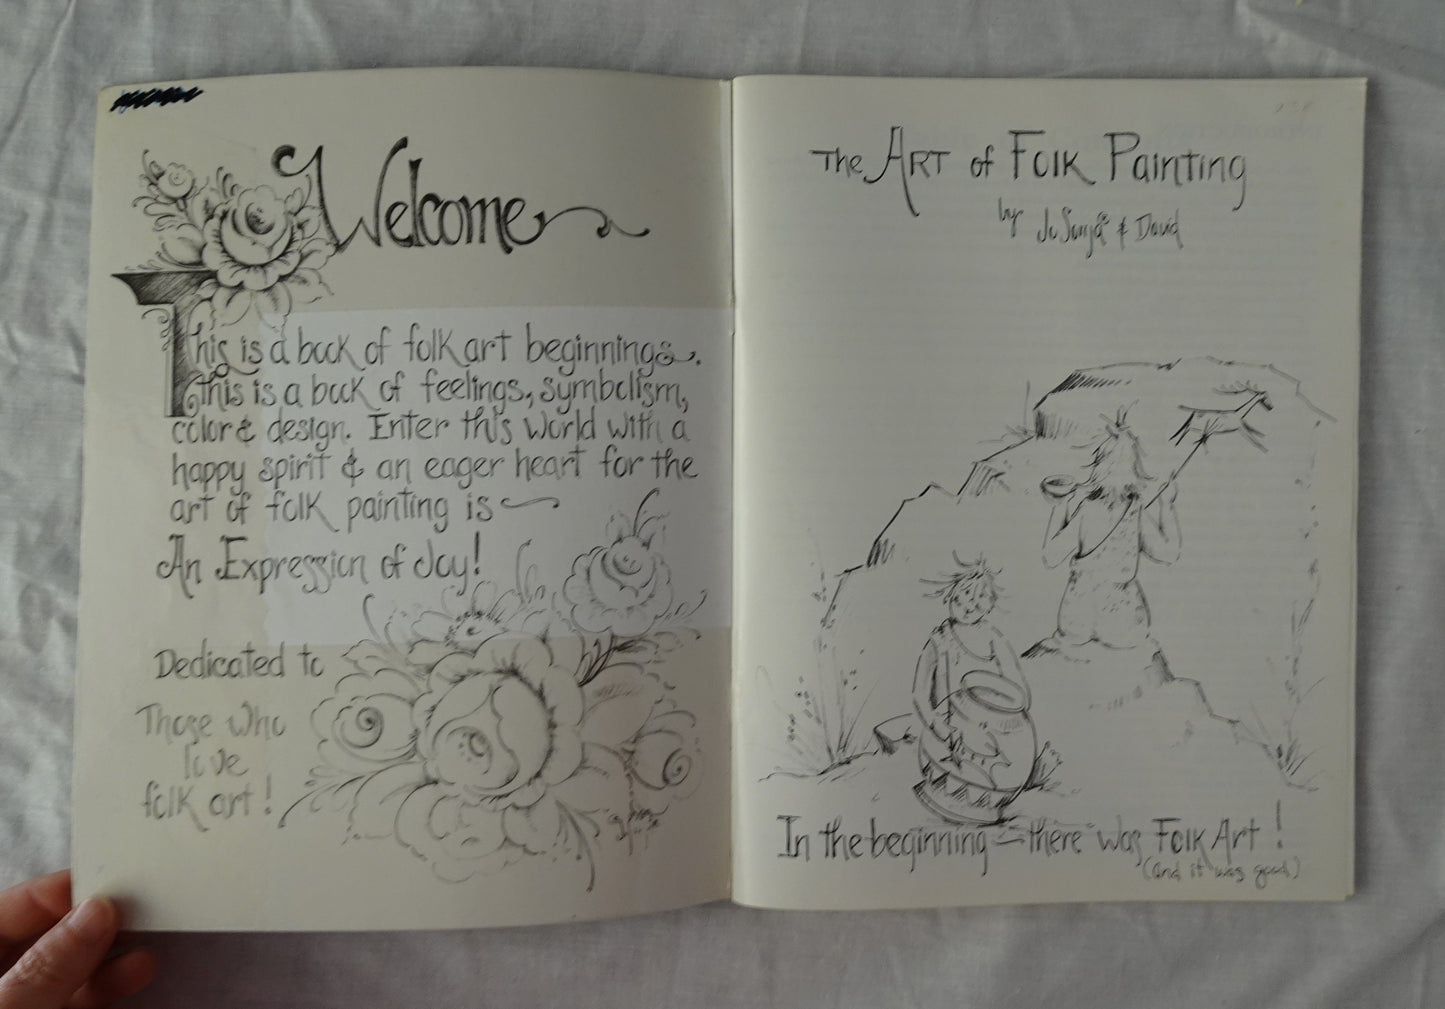 Welcome
This is a book of folk art beginnings.
This is a book of feelings, symbolism,
color & design. Enter this world with a
happy spirit & an eager heart for the
art of folk painting is
An Expression of Joy!
Dedicated to
Those who
love
folk art!
The ART of Folk Painting
by Jo Sonja & David
In the beginning — there was Folk Art!
(and it was good)